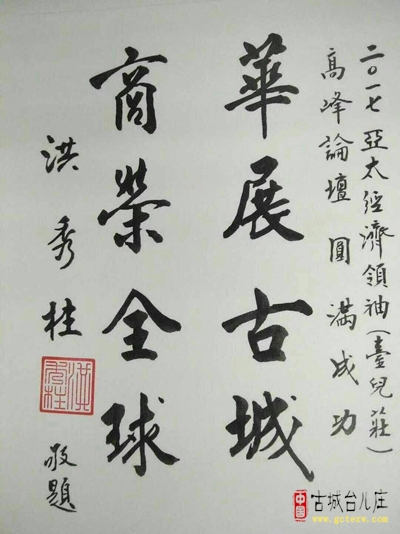 二〇一七亞太經濟領袖(臺兒莊)
高峰論壇圓滿成功
華展古城
商榮全球
洪秀柱
敬題
洪秀柱
中国 古城台儿庄
www.gctezw.com